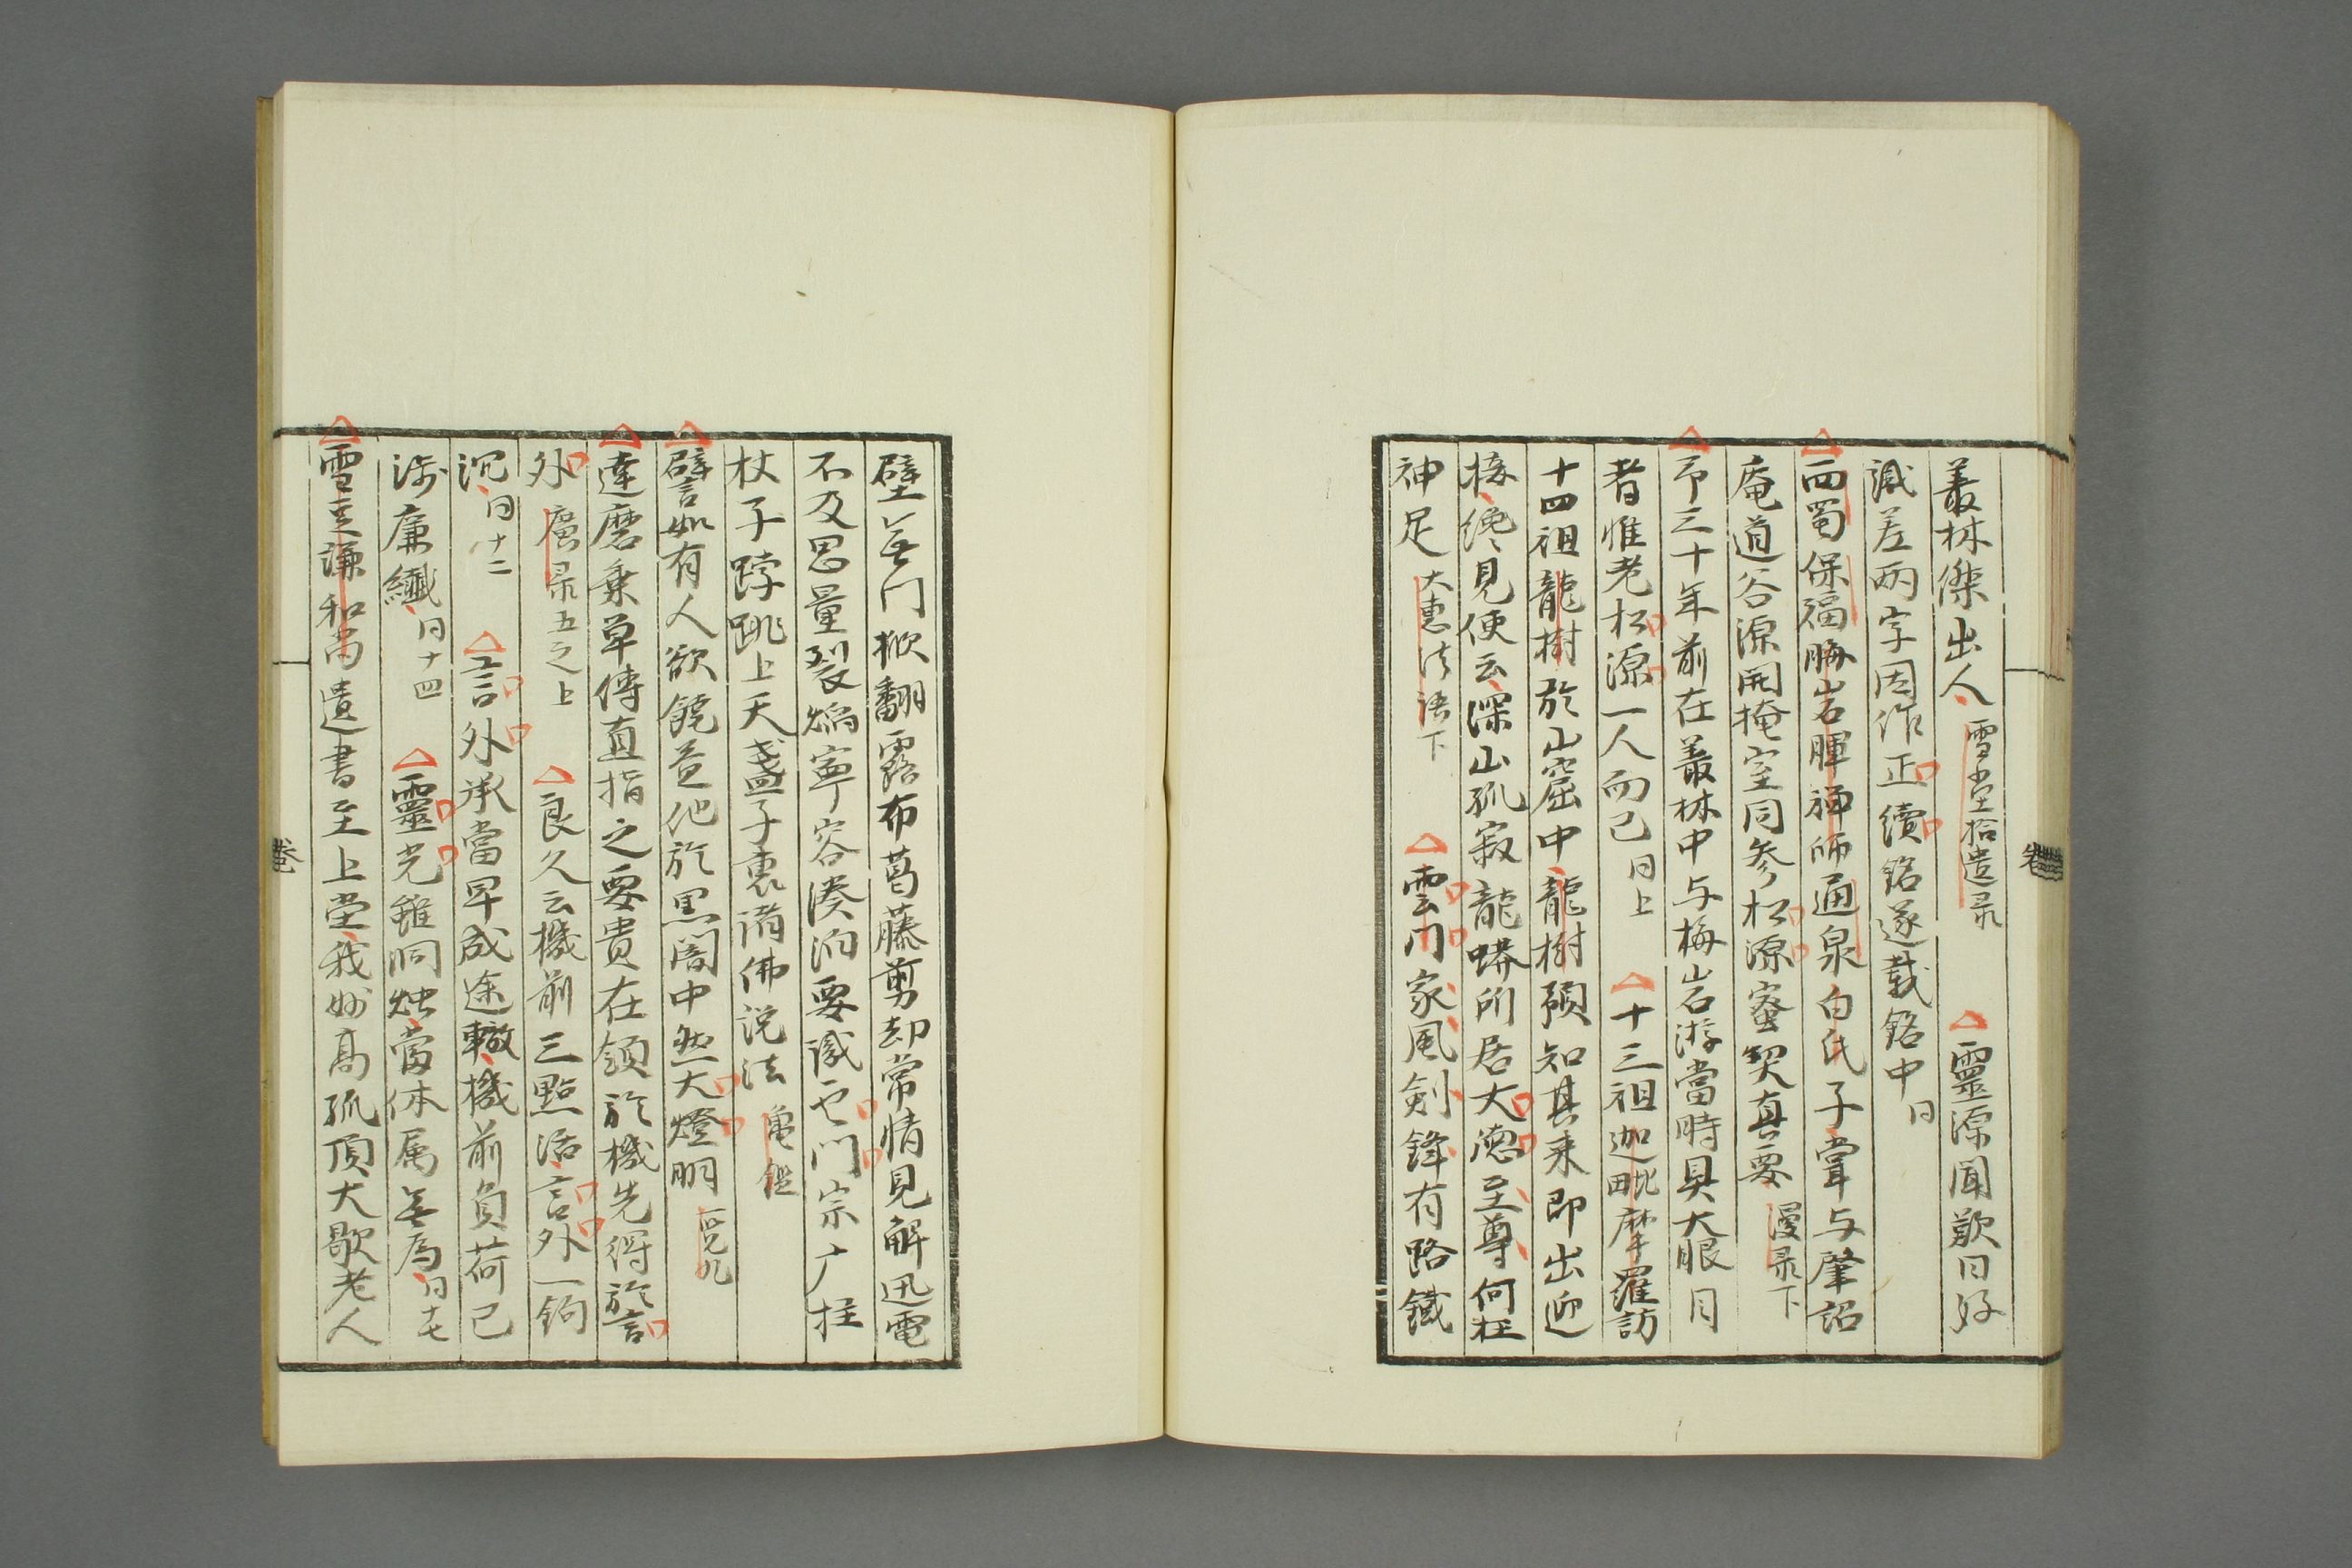 叢林傑出人 雪堂拾遺彔 靈源聞歎曰好
諴差兩字因作正續銘遂載銘中 同
西蜀保福勝岩暉禅师通泉白氏子甞与肇詔
庵道谷源開掩室同参松源密契真要 漫彔下
予三十年前在叢林中与梅岩游當時具大眼目
者惟老松源一人而已 同上 十三祖迦毗摩羅訪
十四祖龍樹於山窟中龍樹預知其来即出迎
接纔見便云深山孤寂龍蟒所居大德至尊何枉
神足 大惠法語下 雲门家風剣鋒有路鐵
壁无门掀翻露布葛藤剪却常情見解迅電
不及思量裂焰寧容湊泊要識云门宗广拄
杖子𨁝跳上天盞子裏諸佛説法 亀鑑
譬如有人欲饒益他於黒闇中然大燈明
達磨乗单傳直指之要貴在領於機先得於言
外 廣彔五之上 良久云機前三點活言外一鉤
沉 同十二 言外承當早成途轍機前負荷已
涉廉纖 同十四 靈光雖洞燭當体属无為
雪 謙和尚遺書至上堂我妙高孤頂大歇老人